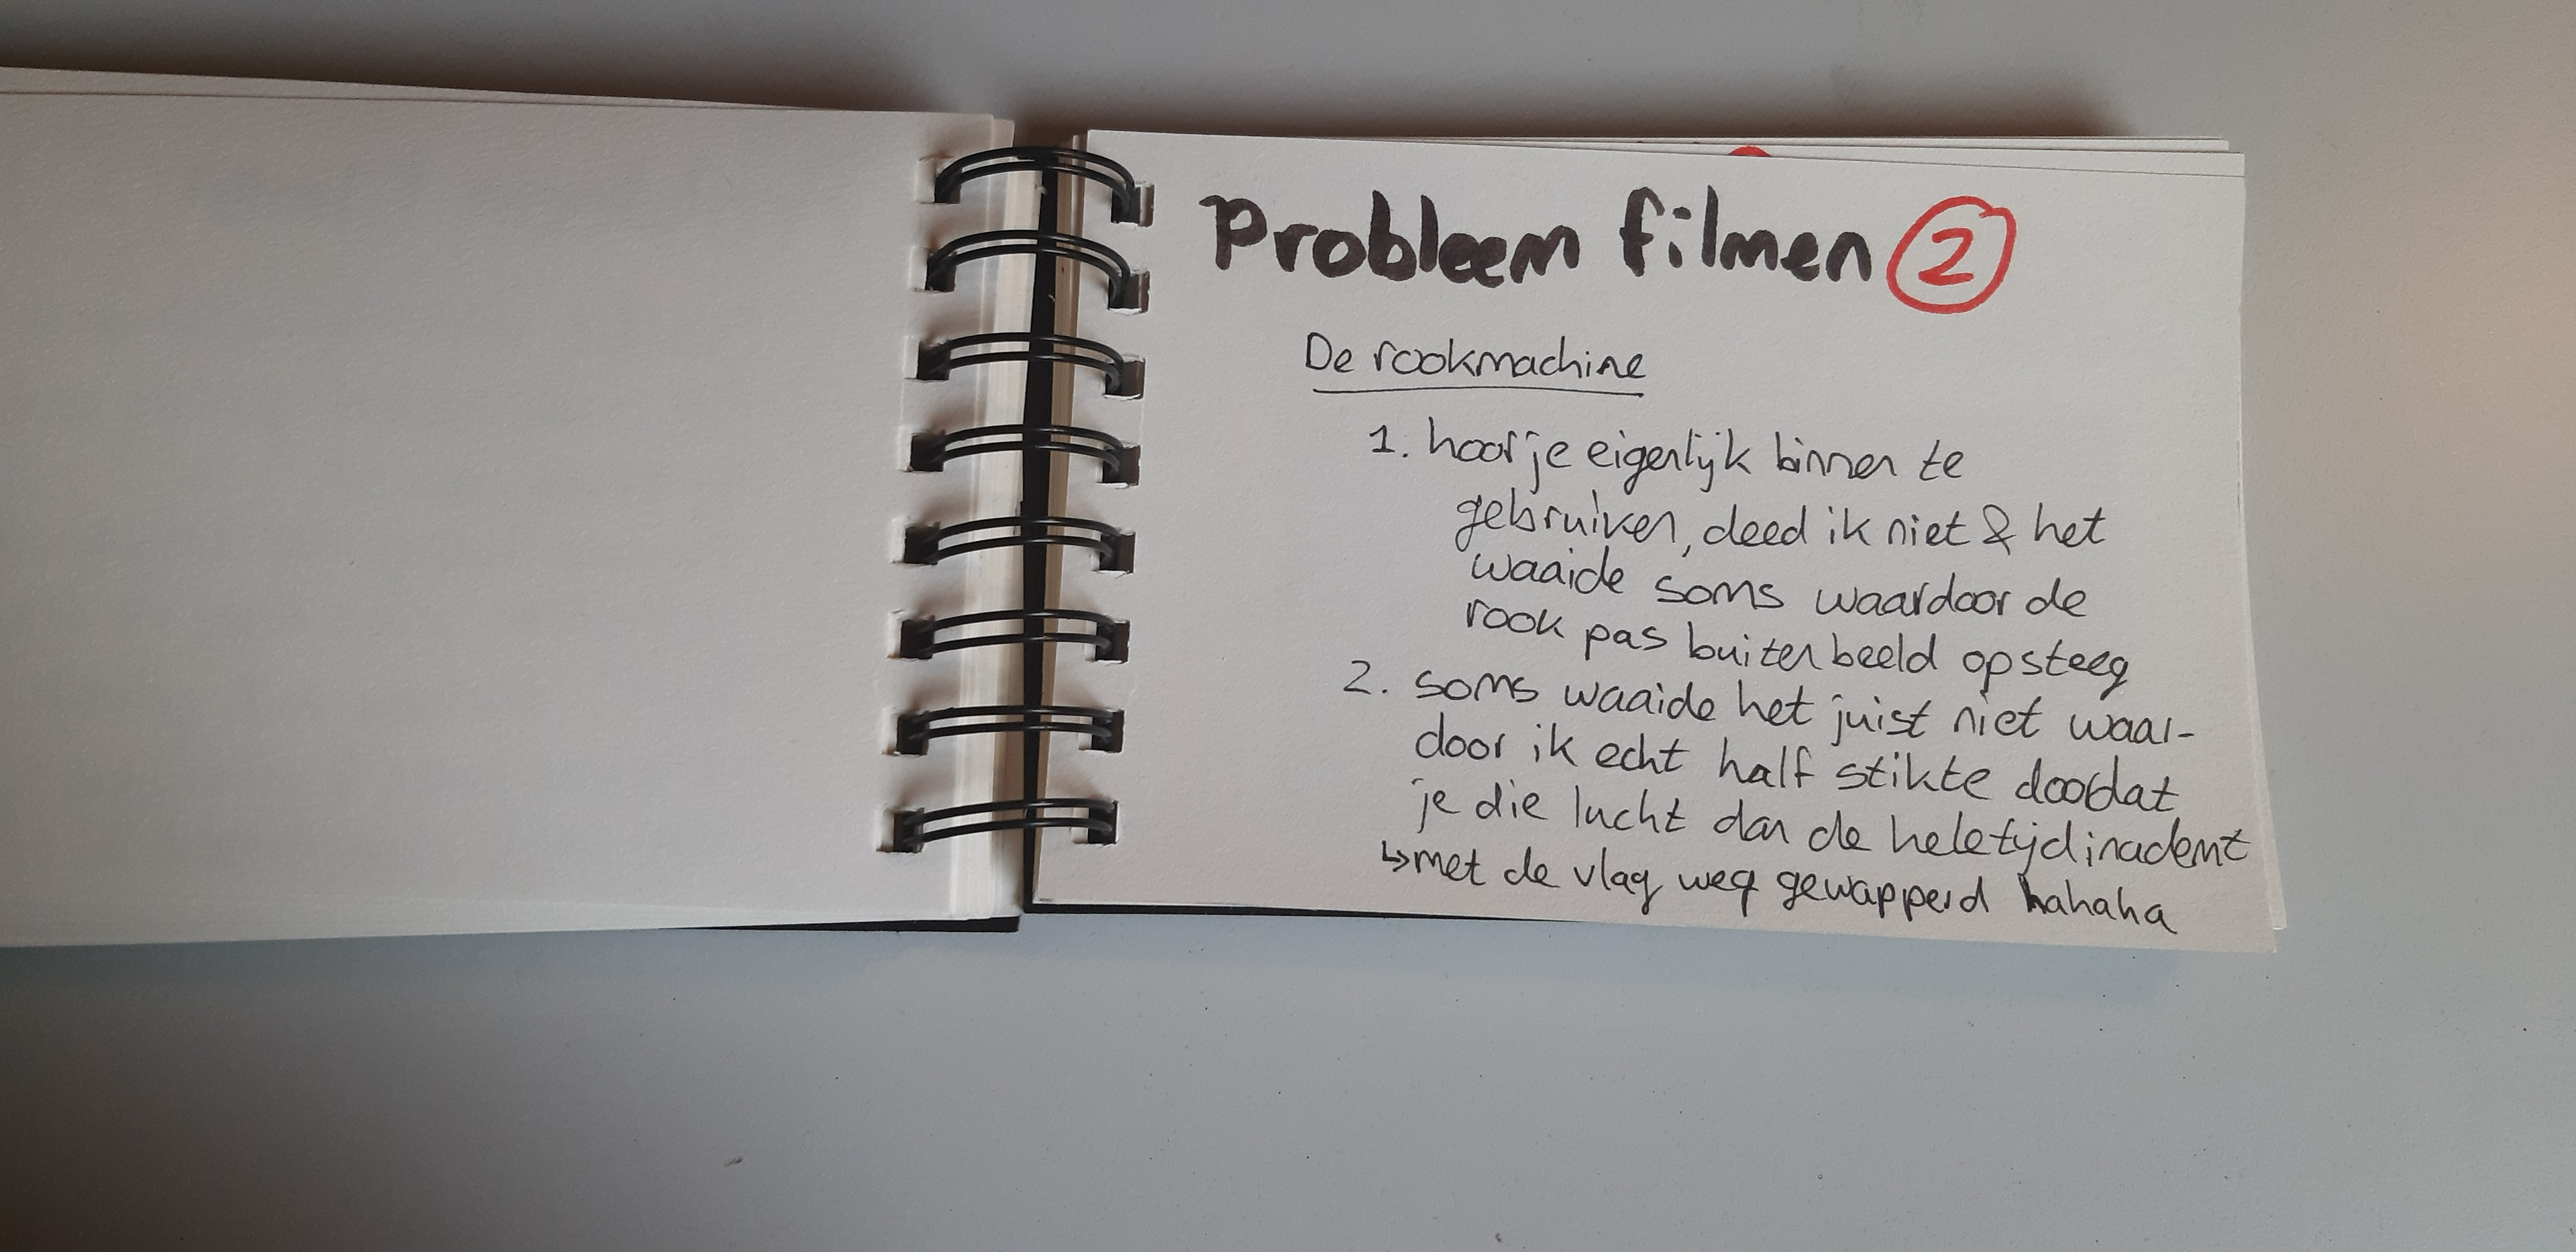 Probleem filmen 2
De rookmachine
1. hoor je eigenlijk binnen te
gebruiken, deed ik niet & het
waaide soms waardoor de
rook pas buiten beeld opsteeg
2. soms waaide het juist niet waar-
door ik echt half stikte doordat
je die lucht dan de hele tijd inademt
↳ met de vlag weg gewapperd hahaha